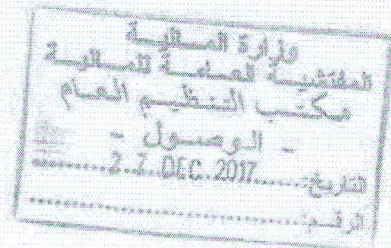 وزارة المالية
المفتشية العامة للمالية
مكتب التنظيم العام
- الوصول -
التاريخ: 27 DEC. 2017
الرقم: